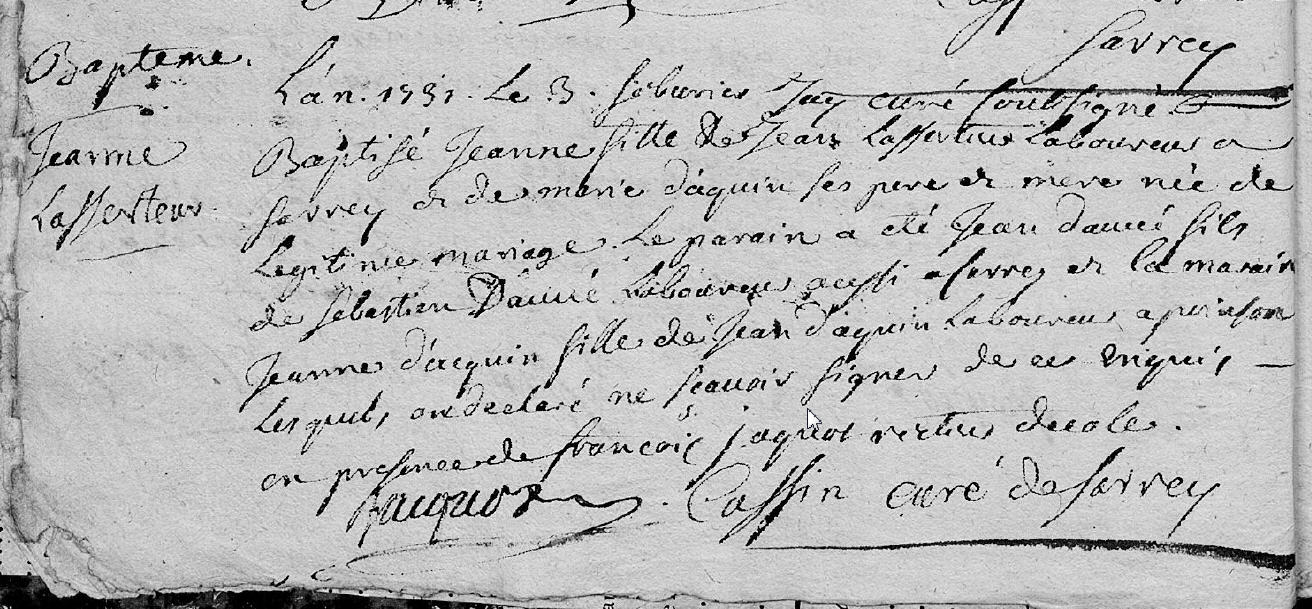 Sarrey
Bapteme.
Jeanne
Lasserteur
L'an. 1731. Le 3. febvrier Jay curé soubsigné
Baptisé Jeanne fille de Jean Lasserteur Laboureur a
Sarrey et de marie d'aquin ses pere et mere née de
Legitime mariage. Le parain a eté Jean daucié fils
de sebastien Daucié Laboureur aussi a Sarrey et la maraine
Jeanne d'acquin fille de Jean d'aquin Laboureur a poinson
Lesquels on declaré ne scavoir signer de ce enquis
en presence de francois jaquot recteur decole.
Jacquot Cassin curé de Sarrey